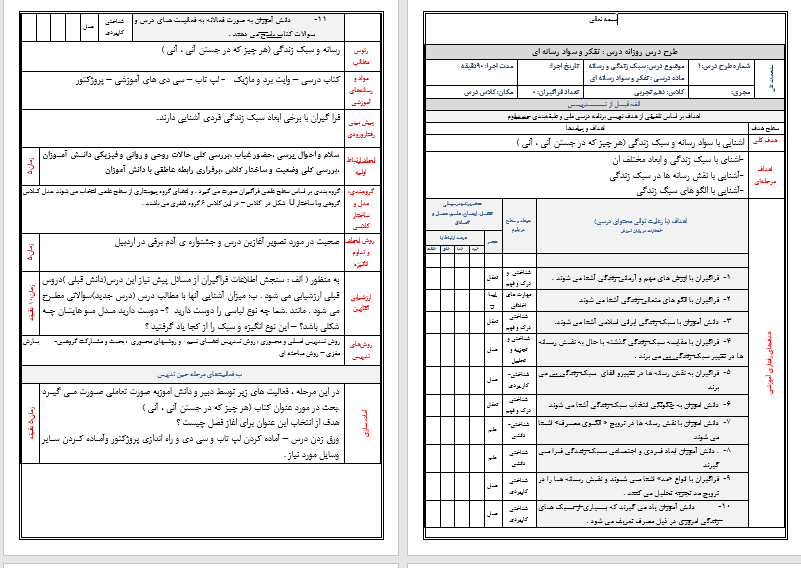 بسمه تعالی
طرح درس روزانه درس : تفکر و سواد رسانه ای
شماره طرح درس:۱
موضوع درس:سبک زندگی و رسانه
ماده درسی : تفکر و سواد رسانه ای
تاریخ اجرا:
مدت اجرا: ۹۰دقیقه
مجری:
کلاس: دهم تجربی
تعداد فراگیران: ۰
مکان: کلاس درس
الف قبل از تدریس
سطح هدف
اهداف و پیامدها
هدف کلی
آشنایی با سواد رسانه و سبک زندگی (هر چیز که در جستن آنی ، آنی )
اهداف مرحله‌ای
-آشنای با سبک زندگی و ابعاد مختلف ان
-آشنایی با نقش رسانه ها در سبک زندگی
-آشنایی با الگو های سبک زندگی
هدفهای رفتاری آموزشی
اهداف (با رعایت توالی محتوای درسی)
حیطه و سطح
۱- فراگیران با ارزش های مهم و آرمانی زندگی آشنا می شوند .
شناختی و درک و فهم
تعقل
۲- فراگیران با الگو های متعالی زندگی آشنا می شوند
مهارت های اخلاقی
ایمان
۳- دانش آموزان با سبک زندگی ایرانی اسلامی آشنا می شوند.
شناختی درک و فهم
تعقل
۴- فراگیران با مقایسه سبک زندگی گذشته با حال به نقش رسانه ها در تغییر سبک زندگی پی می برند .
شناختی و تجزیه و تحلیل
عمل
۵- فراگیران به نقش رسانه ها در تغییر و القای سبک زندگی پی می برند
شناختی- کاربردی
عمل
۶- دانش آموزان به چگونگی انتخاب سبک زندگی آشنا می شوند
شناختی درک و فهم
تعقل
۷- دانش آموزان با نقش رسانه ها در ترویج « الگوی مصرف» آشنا می شوند
شناختی- دانشی
علم
۸- دانش آموزان ابعاد فردی و اجتماعی سبک زندگی فرا می گیرند
شناختی دانشی
علم
۹- فراگیران با انواع «مد» آشنا می شوند و نقش رسانه ها را در ترویج مد تجزیه تحلیل می کنند .
شناختی کاربردی
عمل
۱۰- دانش آموزان یاد می گیرند که بسیاری از سبک های زندگی امروزی در ذیل مصرف تعریف می شود .
شناختی کاربردی
عمل
۱۱- دانش آموزان به صورت فعالانه به فعالیت های درس و سوالات کتاب پاسخ می دهند .
شناختی کاربردی
عمل
رئوس مطالب
رسانه و سبک زندگی (هر چیز که در جستن آنی ، آنی )
مواد و رسانه‌های آموزشی
کتاب درسی – وایت برد و ماژیک - لپ تاپ – سی دی های آموزشی – پروژکتور
پیش بینی رفتار ورودی
فرا گیران با برخی ابعاد سبک زندگی فردی آشنایی دارند..
ایجاد ارتباط اولیه
سلام و احوال پرسی ،حضور غیاب ،بررسی کلی حالات روحی و روانی و فیزیکی دانش آموزان
،بررسی کلی وضعیت و ساختار کلاس ،برقراری رابطه عاطفی با دانش آموزان
زمان:۵
گروه‌بندی، مدل و ساختار کلاسی
گروه بندی بر اساس سطح علمی فراگیران صورت می گیرد . و اعضای گروه پیوستاری از سطح علمی انتخاب می شوند مدل کلاس گروهی و با ساختار U شکل در کلاس – در این کلاس ۶ گروه ۵نفری می باشند .
روش ایجاد و تداوم انگیزه
صحبت در مورد تصویر آغازین درس و جشنواره ی آدم برفی در اردبیل
زمان:۵
ارزشیابی آغازین
به منظور ( الف : سنجش اطلاعات فراگیران از مسائل پیش نیاز این درس(دانش قبلی )دروس
قبلی ارزشیابی می شود . ب: میزان آشنایی آنها با مطالب درس (درس جدید)سوالاتی مطرح
می شود . مانند .شما چه نوع لباسی را دوست دارید ؟- دوست دارید مدل مو هایتان چه
شکلی باشد؟ – این نوع انگیزه و سبک را از کجا یاد گرفتید ؟
زمان:۱۰ دقیقه
روش‌های تدریس
روش تدریس اعضای تیم . و روشهای محوری ، بحث و مشارکت گروهی- بارش مغزی – روش مباحثه ای
ب: فعالیت‌های مرحله حین تدریس
آماده سازی
در این مرحله ، فعالیت های زیر توسط دبیر و دانش آموزبه صورت تعاملی صورت می گیرد
.بحث در مورد عنوان کتاب (هر چیز که در جستن آنی ، آنی )
هدف از انتخاب این عنوان برای آغاز فصل چیست ؟
ورق زدن درس – آماده کردن لپ تاپ و سی دی و راه اندازی پروژکتور وآماده کردن سایر
وسایل مورد نیاز .
زمان:۵ دقیقه